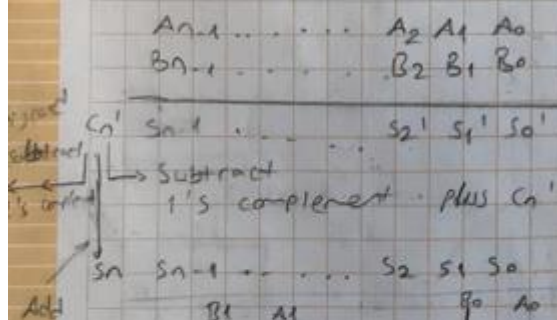 An-1 . . . . . . A2 A1 A0
Bn-1 . . . . . B2 B1 B0
Cn' Sn-1' . . . . S2' S1' S0'
Subtract
1's complement plus Cn'
Sn Sn-1 . . . . . S2 S1 S0
Add B1 A1 B0 A0